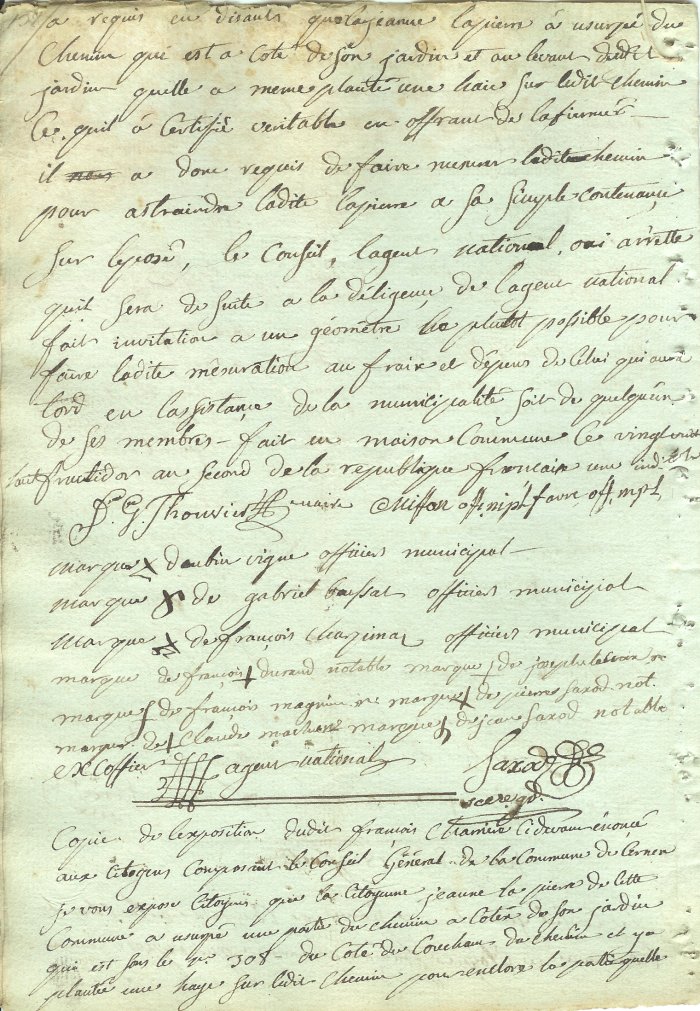 a requis en disants que la jeanne lapierre à usurpé du
Chemin qui est a Coté de son jardin et au levant dudit
jardin quelle a meme planté une haie sur ledit chemin
Ce quil à Certifié veritable en offrant de laffirmer
il a donc requis de faire mesurer ledit chemin
pour astraindre ladite lapierre a sa simple Contenance
Sur lexposé, le Conseil, lagent national, oui arrette
quil sera de suite a la déligence de lagent national
fait invitation a un géometre le plutot possible pour
faire ladite mesuration au fraix et dépens de Celui qui aura
tord en lassistance de la municipalité soit de quelquun
de ses membres – fait en maison Commune Ce vingt huit
fructidor an Second de la republique francaise une indivisible
Thouvier maire off. mpl favre off. mpl
marque x daubin vigne officier municipal –
marque x de gabriel bussat officier municipal
marque x de françois officier municipal
marque de françois + durand notable marque + de joseph
marque de françois magnin n. marque + de pierre Saxod not.
marque de + Claude marque de jean Saxod notable
Excoffier agent national Saxod
secre gr.
Copie de lexposition dudit françois Cidevan énoncé
aux Citoyens Composant le Conseil Général de la Commune de Cernex
je vous expose Citoyens que la Citoyenne jeanne la pierre de Cette
Commune a usurpé une partie du chemin a Coté de son jardin
qui est sous le no 308 du Coté du Couchant du chemin et ya
plantée une haye sur ledit Chemin pour enclore la partie quelle